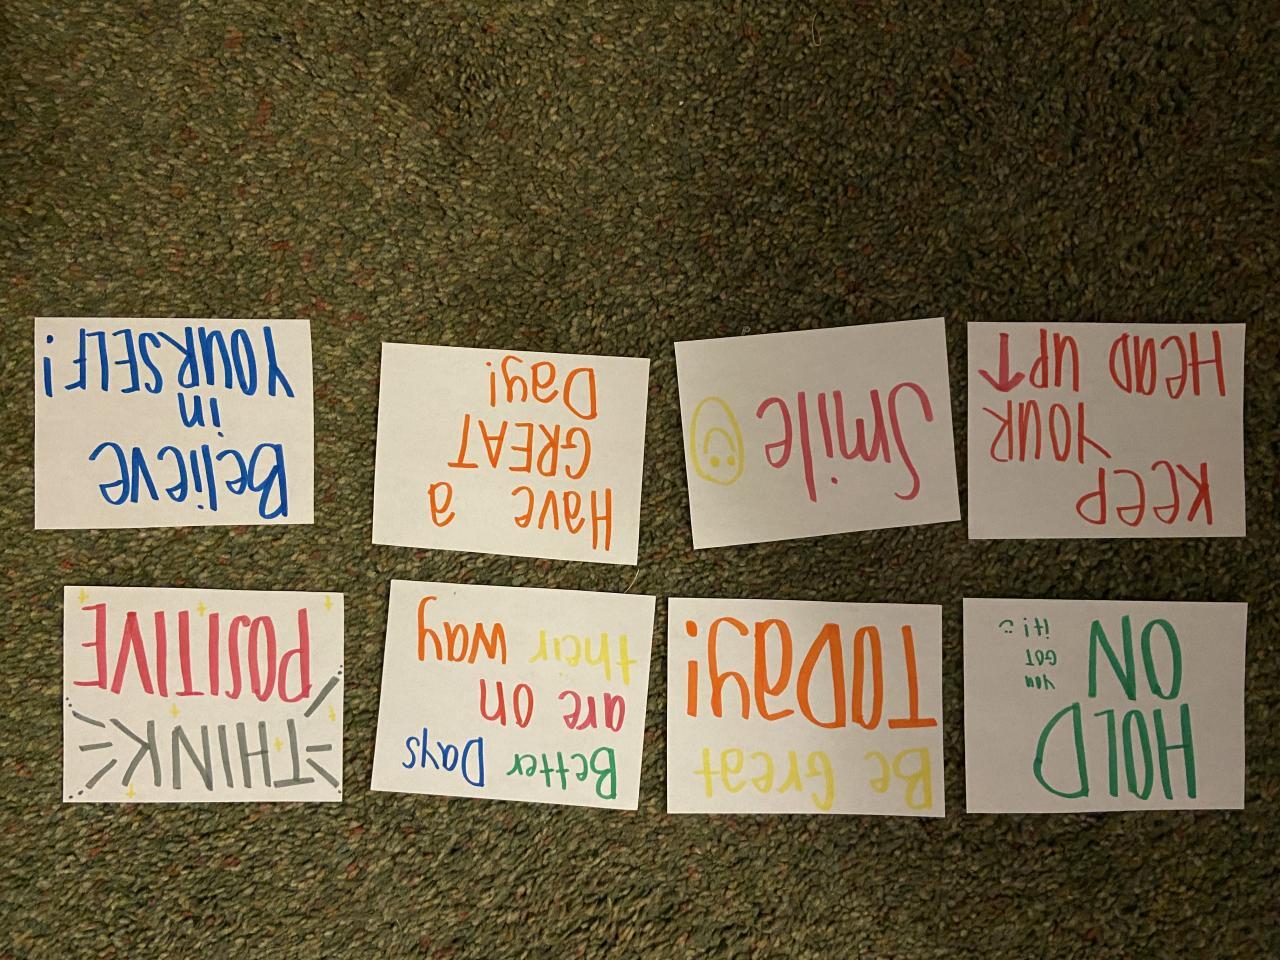 HOLD
ON
you
GOT
it! :)
Be Great
TODay!
Better Days
are on
their way
THINK
POSITIVE
KeeP
YOUR
HeaD UP↑
Smile
Have a
GREAT
Day!
Believe
in
YOURSELF!